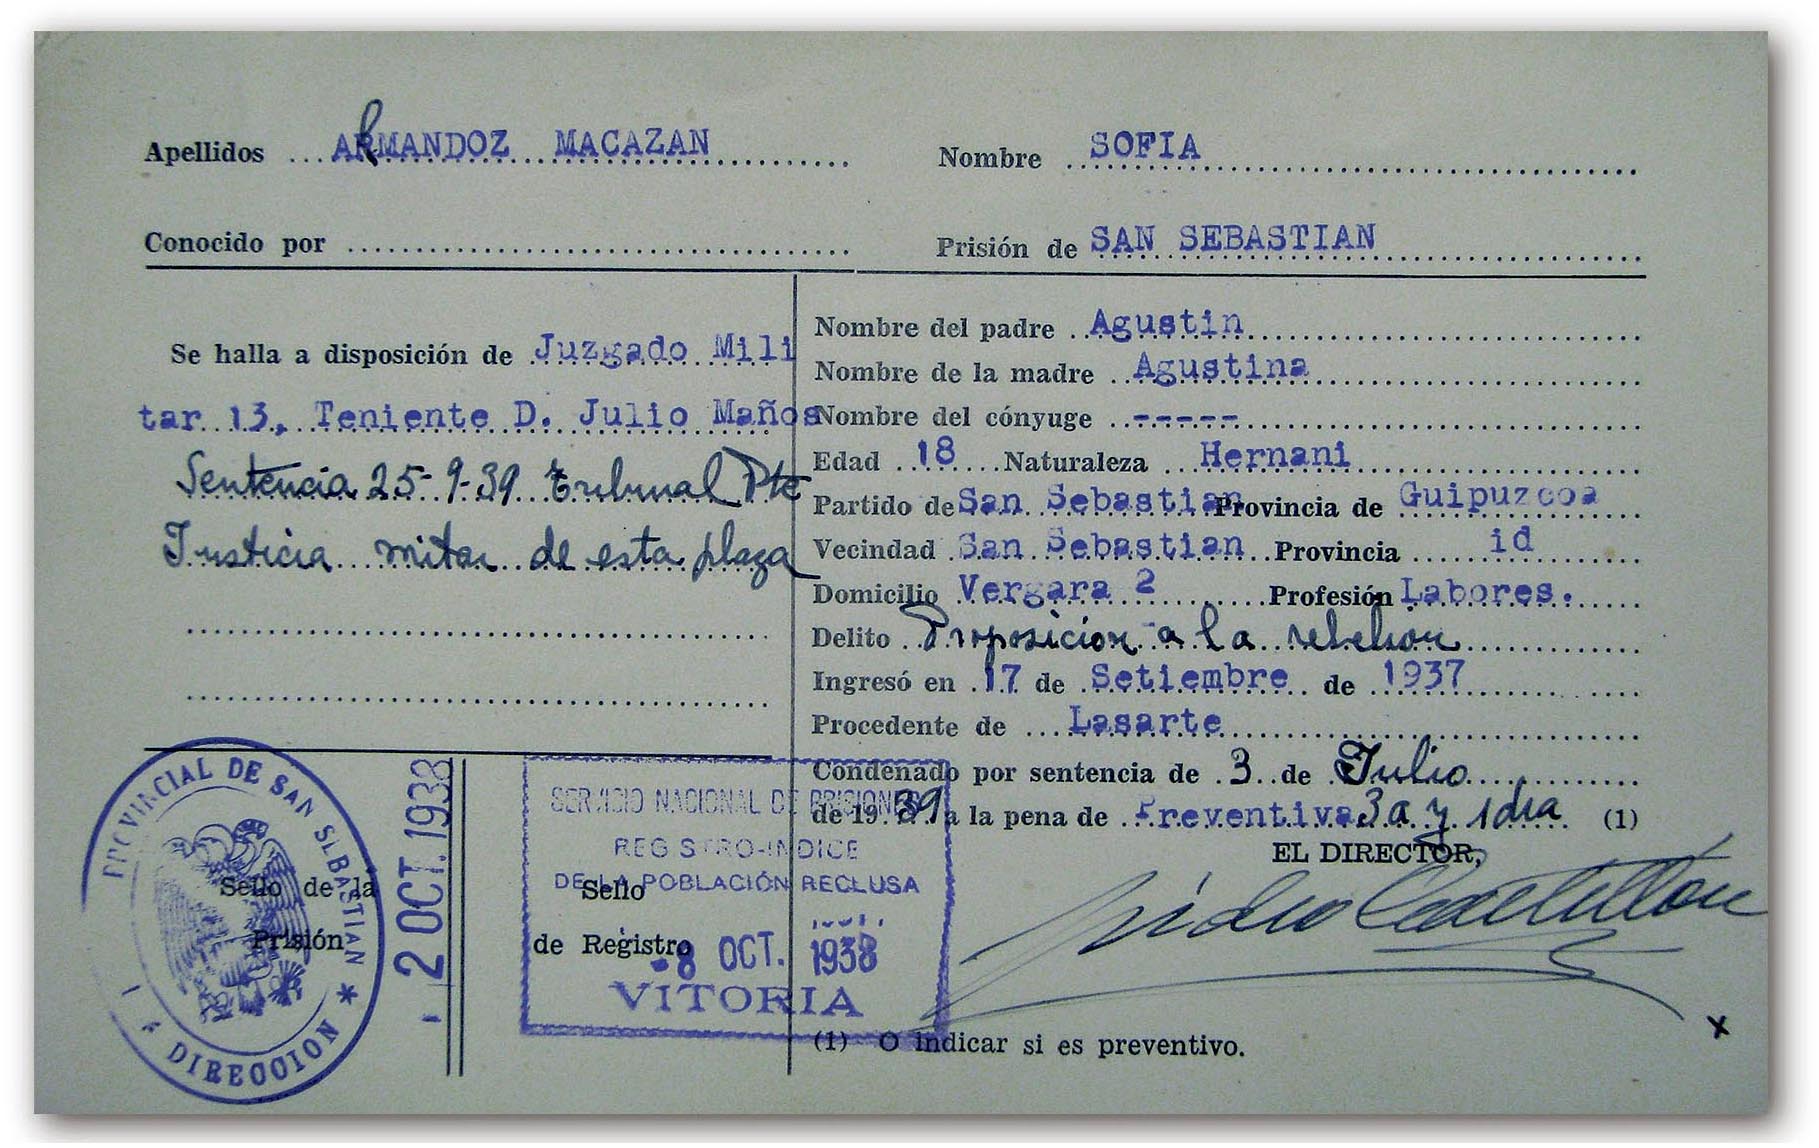 Apellidos ... ARMANDOZ MACAZAN
Nombre ... SOFIA
Conocido por
Prisión de SAN SEBASTIAN
Se halla a disposición de Juzgado Mili
tar 13, Teniente D. Julio Maños
Sentencia 25-9-39 Tribunal Pte
Justicia mitar de esta plaza
Nombre del padre Agustin
Nombre de la madre Agustina
Nombre del cónyuge -----
Edad 18 Naturaleza Hernani
Partido de San Sebastian Provincia de Guipuzcoa
Vecindad San Sebastian Provincia id
Domicilio Vergara 2 Profesión Labores.
Delito Proposicion a la rebelion
Ingresó en 17 de Setiembre de 1937
Procedente de Lasarte
Condenado por sentencia de 3 de Julio
de 19 39 a la pena de Preventiva 3 a y 1 dia (1)
EL DIRECTOR,
Isidro Castillón
(1) O indicar si es preventivo.
PROVINCIAL DE SAN SEBASTIAN
DIRECCION
Sello de la
Prisión
- 2 OCT. 1938
SERVICIO NACIONAL DE PRISIONES
REGISTRO-INDICE
DE LA POBLACIÓN RECLUSA
Sello
de Registro
-8 OCT. 1938
VITORIA
x